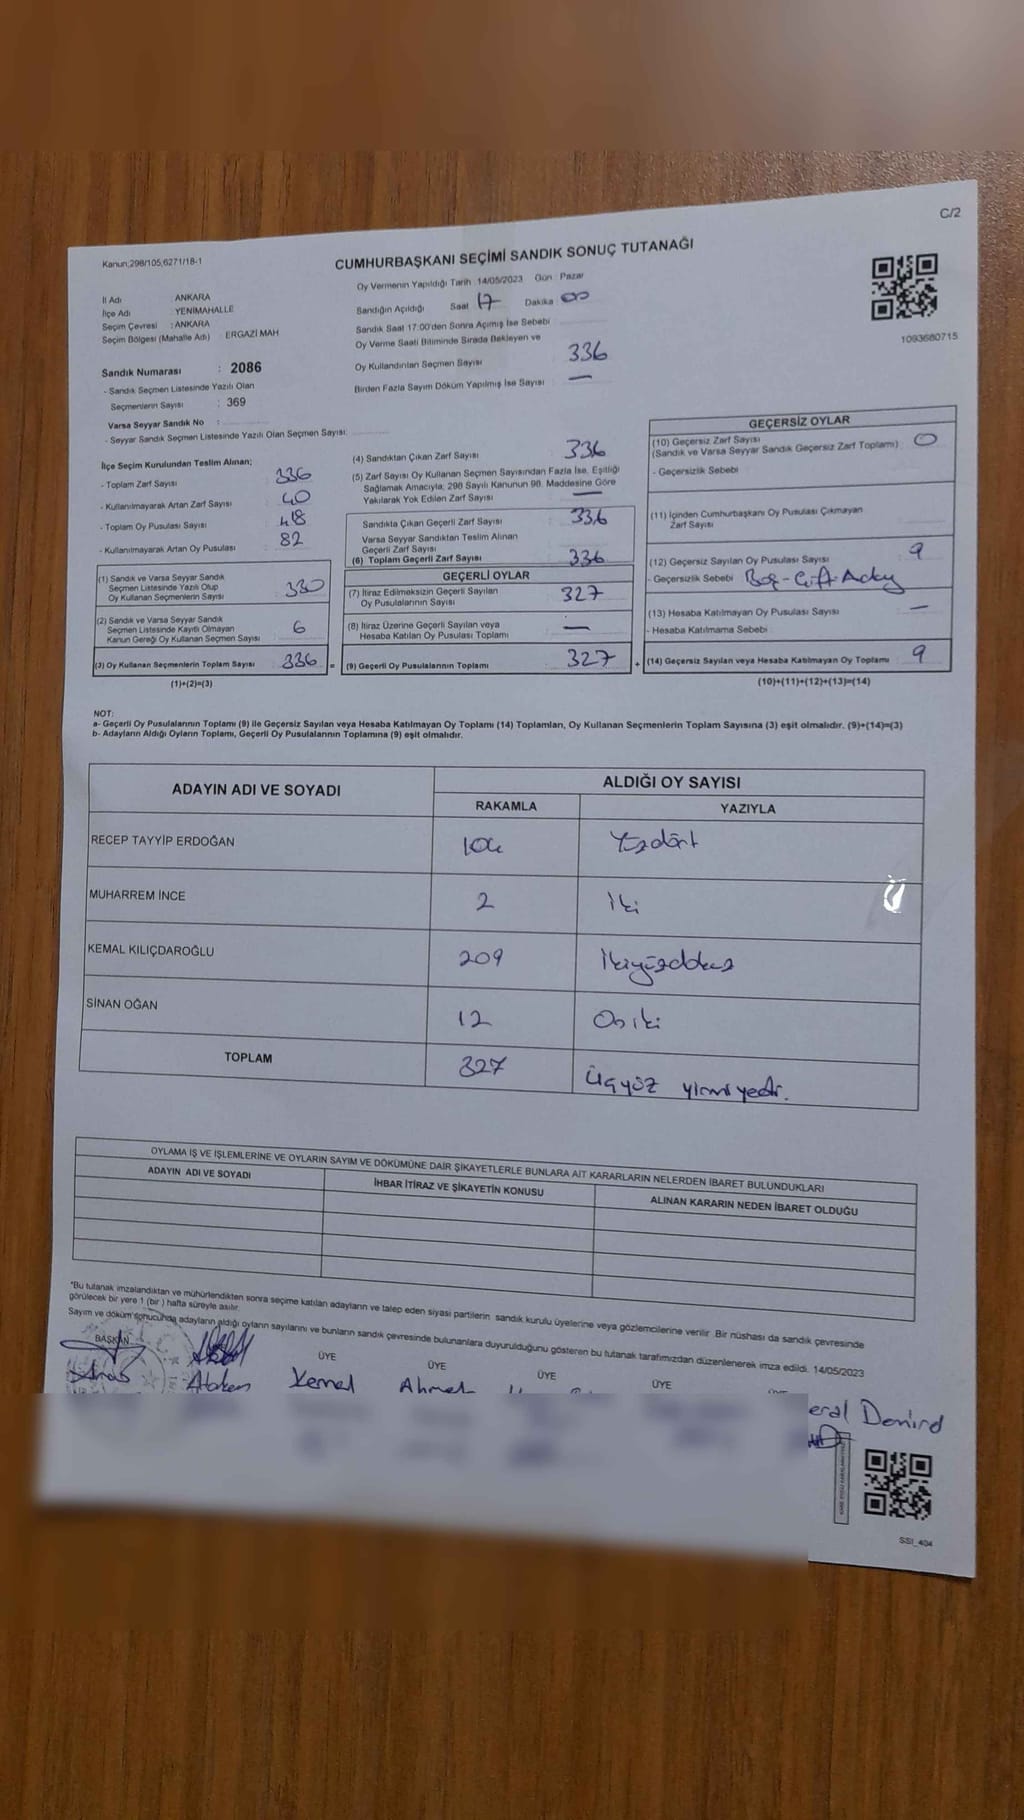 C/2
Kanun;298/105,6271/18-1
CUMHURBAŞKANI SEÇİMİ SANDIK SONUÇ TUTANAĞI
1093680715
İl Adı ANKARA
İlçe Adı : YENİMAHALLE
Seçim Çevresi : ANKARA
Seçim Bölgesi (Mahalle Adı) ERGAZİ MAH
Sandık Numarası : 2086
- Sandık Seçmen Listesinde Yazılı Olan
Seçmenlerin Sayısı : 369
Varsa Seyyar Sandık No :
- Seyyar Sandık Seçmen Listesinde Yazılı Olan Seçmen Sayısı:
Oy Vermenin Yapıldığı Tarih 14/05/2023 Gün : Pazar
Sandığın Açıldığı Saat 17 Dakika 00
Sandık Saat 17:00'den Sonra Açımış İse Sebebi
Oy Verme Saati Bitiminde Sırada Bekleyen ve
Oy Kullandırılan Seçmen Sayısı 336
Birden Fazla Sayım Döküm Yapılmış İse Sayısı —
İlçe Seçim Kurulundan Teslim Alınan;
- Toplam Zarf Sayısı 336
- Kullanılmayarak Artan Zarf Sayısı 40
- Toplam Oy Pusulası Sayısı 418
- Kullanılmayarak Artan Oy Pusulası 82
(1) Sandık ve Varsa Seyyar Sandık
Seçmen Listesinde Yazılı Olup
Oy Kullanan Seçmenlerin Sayısı 330
(2) Sandık ve Varsa Seyyar Sandık
Seçmen Listesinde Kayıtlı Olmayan
Kanun Gereği Oy Kullanan Seçmen Sayısı 6
(3) Oy Kullanan Seçmenlerin Toplam Sayısı 336 =
(1)+(2)=(3)
(4) Sandıktan Çıkan Zarf Sayısı 336
(5) Zarf Sayısı Oy Kullanan Seçmen Sayısından Fazla İse, Eşitliği
Sağlamak Amacıyla, 298 Sayılı Kanunun 98. Maddesine Göre
Yakılarak Yok Edilen Zarf Sayısı —
Sandıkta Çıkan Geçerli Zarf Sayısı 336
Varsa Seyyar Sandıktan Teslim Alınan
Geçerli Zarf Sayısı
(6) Toplam Geçerli Zarf Sayısı 336
GEÇERLİ OYLAR
(7) İtiraz Edilmeksizin Geçerli Sayılan
Oy Pusulalarının Sayısı 327
(8) İtiraz Üzerine Geçerli Sayılan veya
Hesaba Katılan Oy Pusulası Toplamı —
(9) Geçerli Oy Pusulalarının Toplamı 327 +
GEÇERSİZ OYLAR
(10) Geçersiz Zarf Sayısı
(Sandık ve Varsa Seyyar Sandık Geçersiz Zarf Toplamı) 0
- Geçersizlik Sebebi
(11) İçinden Cumhurbaşkanı Oy Pusulası Çıkmayan
Zarf Sayısı
(12) Geçersiz Sayılan Oy Pusulası Sayısı 9
- Geçersizlik Sebebi Boş-Çift-Aday
(13) Hesaba Katılmayan Oy Pusulası Sayısı —
- Hesaba Katılmama Sebebi
(14) Geçersiz Sayılan veya Hesaba Katılmayan Oy Toplamı 9
(10)+(11)+(12)+(13)=(14)
NOT:
a- Geçerli Oy Pusulalarının Toplamı (9) ile Geçersiz Sayılan veya Hesaba Katılmayan Oy Toplamı (14) Toplamları, Oy Kullanan Seçmenlerin Toplam Sayısına (3) eşit olmalıdır. (9)+(14)=(3)
b- Adayların Aldığı Oyların Toplamı, Geçerli Oy Pusulalarının Toplamına (9) eşit olmalıdır.
ADAYIN ADI VE SOYADI ALDIĞI OY SAYISI
RAKAMLA YAZIYLA
RECEP TAYYİP ERDOĞAN 104 Yüzdört
MUHARREM İNCE 2 iki
KEMAL KILIÇDAROĞLU 209 İkiyüzdokuz
SİNAN OĞAN 12 Oniki
TOPLAM 327 Üçyüz yirmiyedi.
OYLAMA İŞ VE İŞLEMLERİNE VE OYLARIN SAYIM VE DÖKÜMÜNE DAİR ŞİKAYETLERLE BUNLARA AİT KARARLARIN NELERDEN İBARET BULUNDUKLARI
ADAYIN ADI VE SOYADI İHBAR İTİRAZ VE ŞİKAYETİN KONUSU ALINAN KARARIN NEDEN İBARET OLDUĞU
*Bu tutanak imzalandıktan ve mühürlendikten sonra seçime katılan adayların ve talep eden siyasi partilerin sandık kurulu üyelerine veya gözlemcilerine verilir. Bir nüshası da sandık çevresinde
görülecek bir yere 1 (bir) hafta süreyle asılır.
Sayım ve döküm sonucunda adayların aldığı oyların sayılarını ve bunların sandık çevresinde bulunanlara duyurulduğunu gösteren bu tutanak tarafımızdan düzenlenerek imza edildi. 14/05/2023
BAŞKAN ÜYE ÜYE ÜYE ÜYE
Kemal Ahmet
SSİ_404